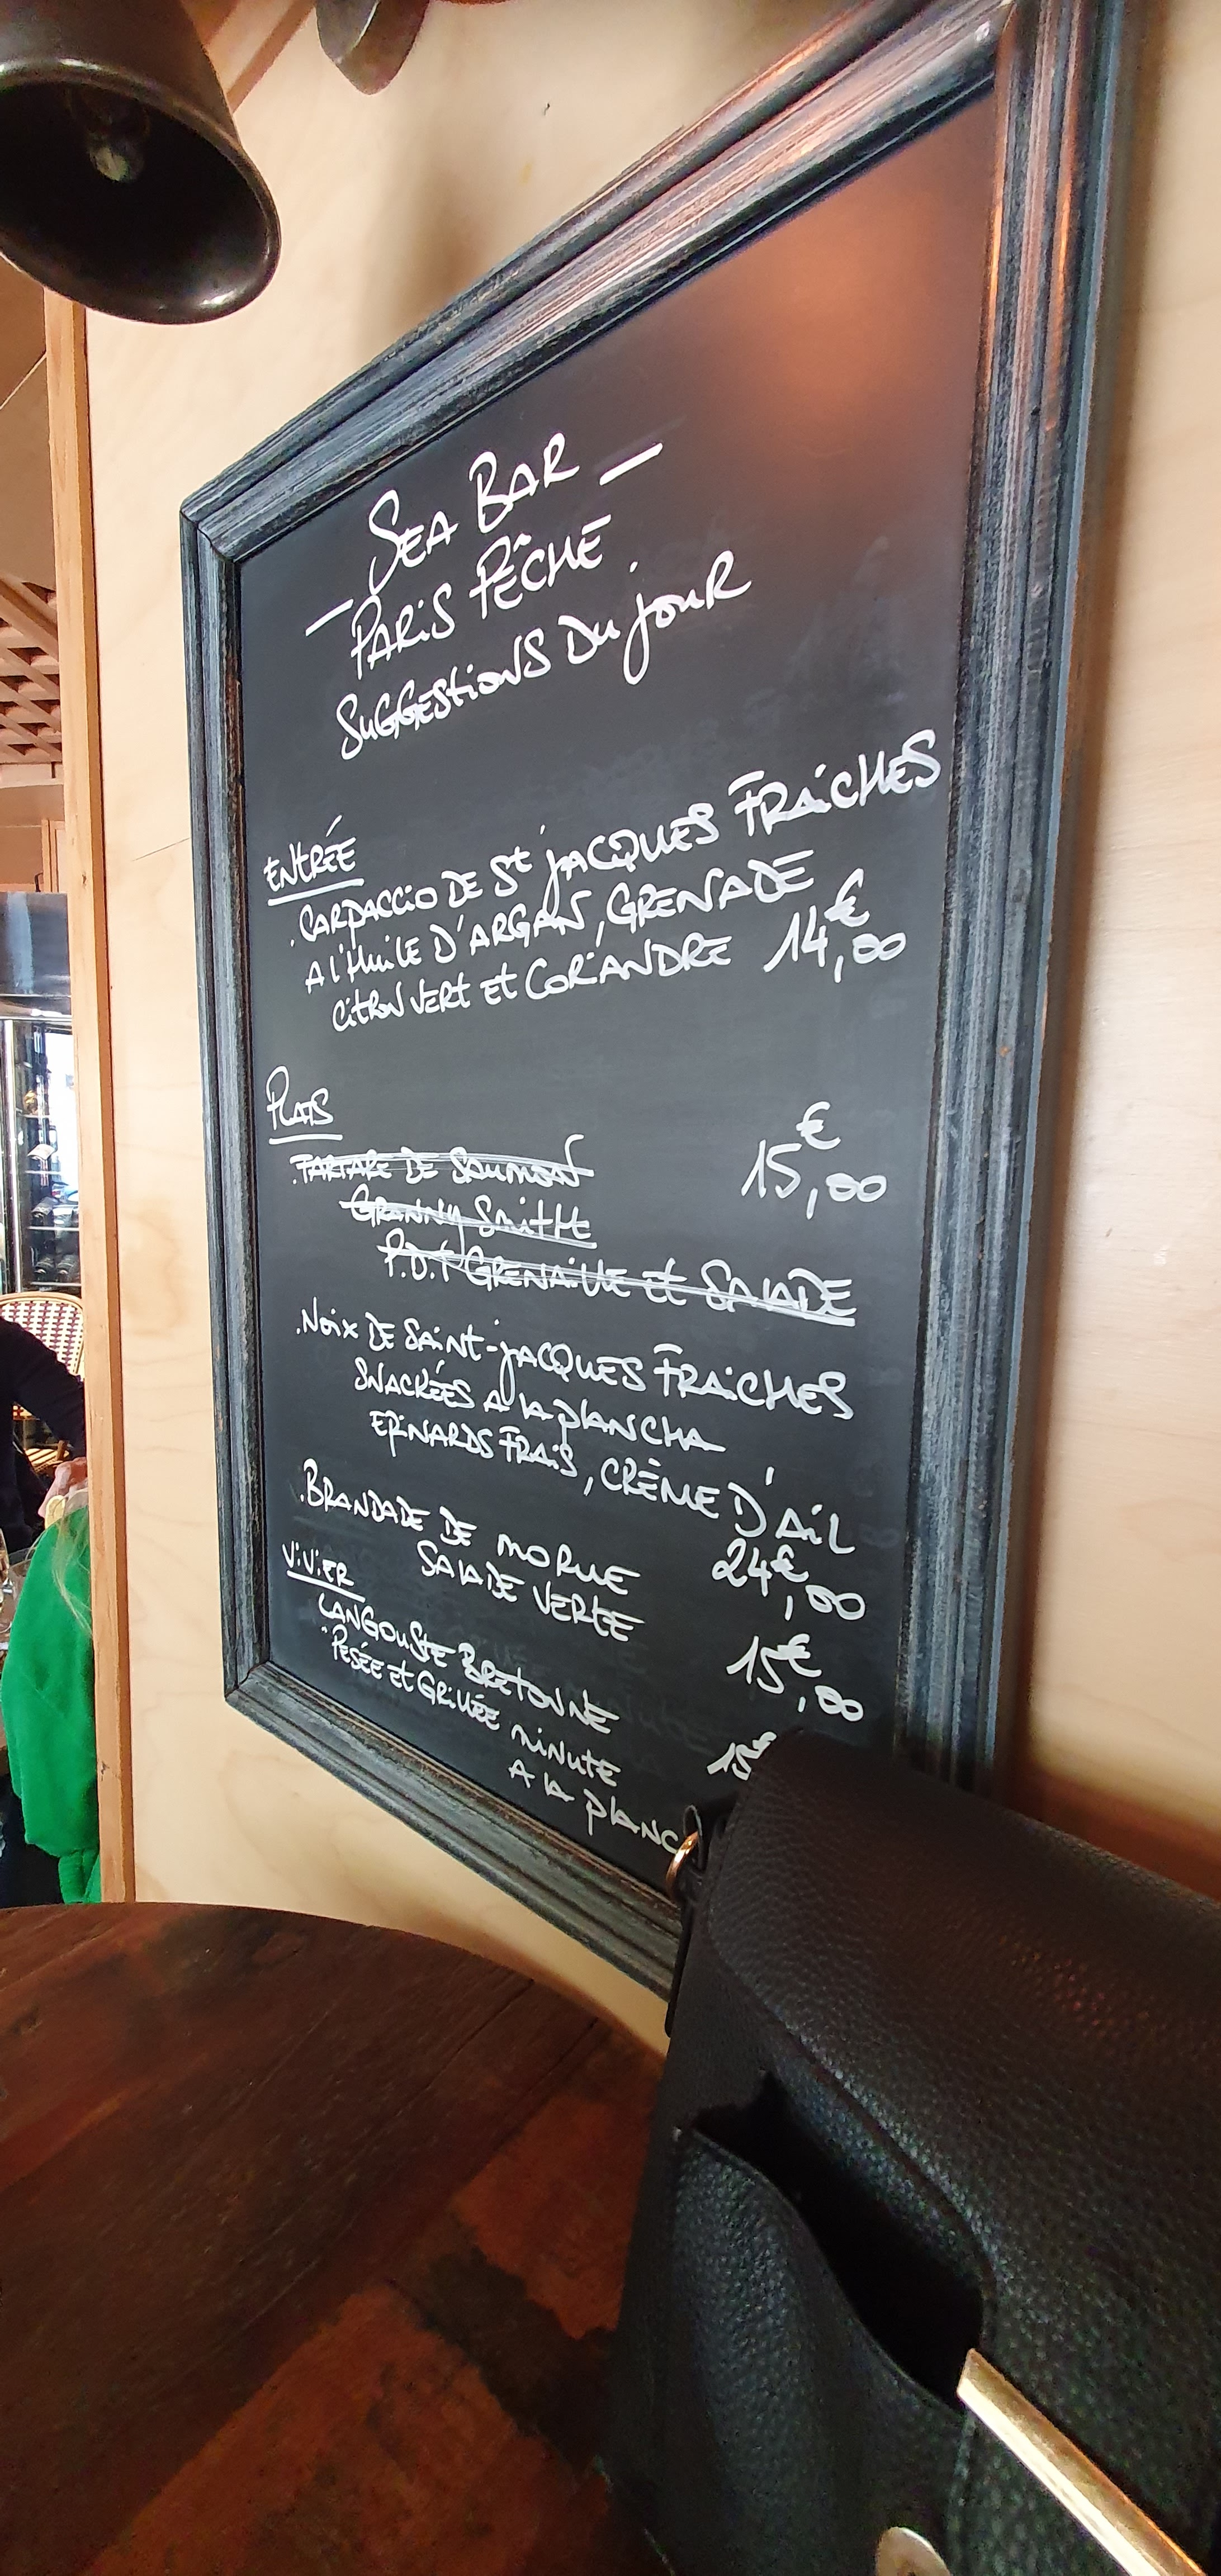 — SEA BAR —
PARIS PÊCHE
SUGGESTIONS DU JOUR
ENTRÉE
. CARPACCIO DE St JACQUES FRAICHES
A l'HUILE D'ARGAN, GRENADE
CITRON VERT ET CORIANDRE 14€,00
PLATS
. TARTARE DE SAUMON 15€,00
GRANNY SMITH
P.D.T GRENAILLE et SALADE
. NOIX DE SAINT-JACQUES FRAICHES
SNACKÉES A LA PLANCHA
EPINARDS FRAIS, CRÈME D'AIL
24€,00
. BRANDADE DE MORUE
SALADE VERTE
15€,00
VIVIER
LANGOUSTE BRETONNE
PESÉE ET GRILLÉE MINUTE
A LA PLANC
15€